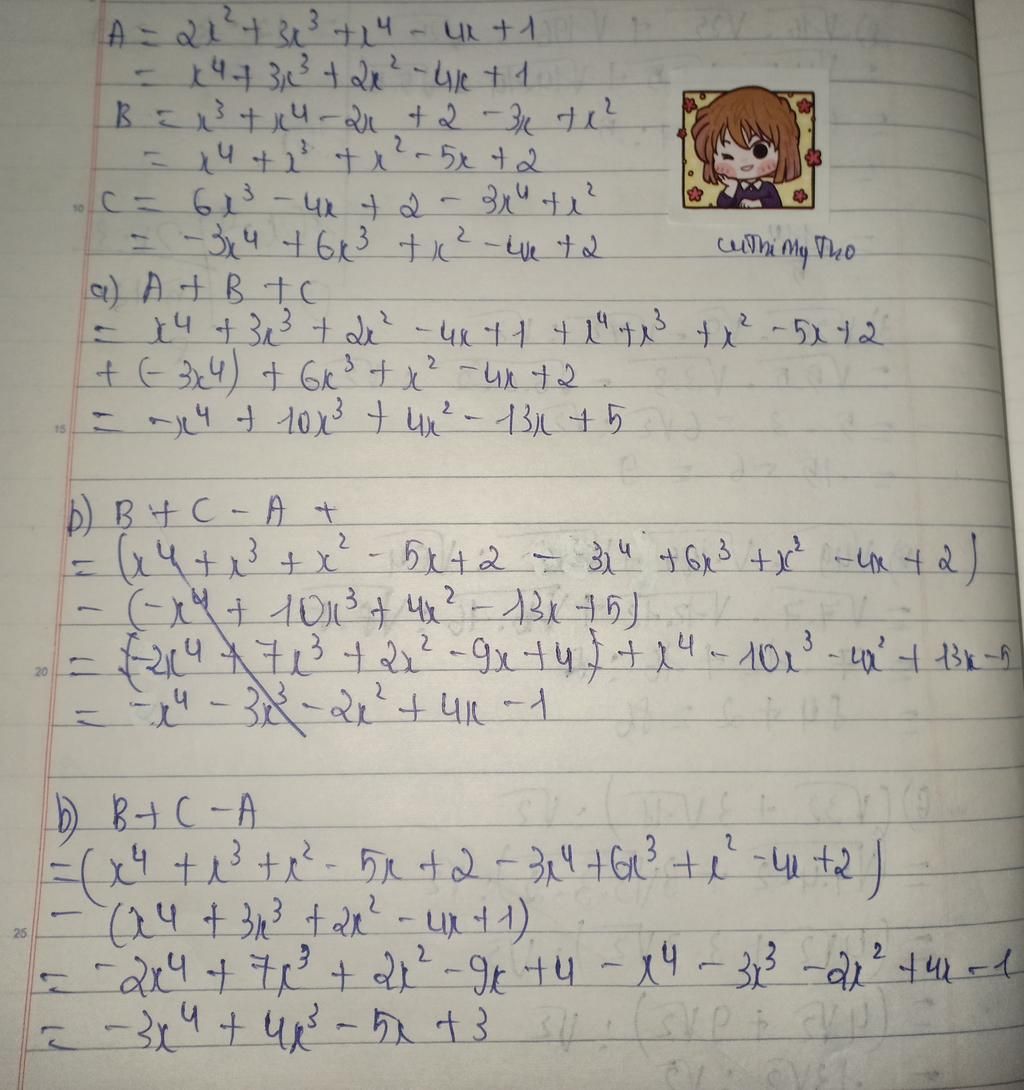 A = 2x² + 3x³ + x⁴ - 4x + 1
= x⁴ + 3x³ + 2x² - 4x + 1
B = x³ + x⁴ - 2x + 2 - 3x + x²
= x⁴ + x³ + x² - 5x + 2
10
C = 6x³ - 4x + 2 - 3x⁴ + x²
= -3x⁴ + 6x³ + x² - 4x + 2
CuThiMyTho
a) A + B + C
= x⁴ + 3x³ + 2x² - 4x + 1 + x⁴ + x³ + x² - 5x + 2
+ (-3x⁴) + 6x³ + x² - 4x + 2
15
= -x⁴ + 10x³ + 4x² - 13x + 5
b) B + C - A +
= (x⁴ + x³ + x² - 5x + 2 - 3x⁴ + 6x³ + x² - 4x + 2)
- (-x⁴ + 10x³ + 4x² - 13x + 5)
20
= (-2x⁴ + 7x³ + 2x² - 9x + 4) + x⁴ - 10x³ - 4x² + 13x - 5
= -x⁴ - 3x³ - 2x² + 4x - 1
b) B + C - A
= (x⁴ + x³ + x² - 5x + 2 - 3x⁴ + 6x³ + x² - 4x + 2)
25
- (x⁴ + 3x³ + 2x² - 4x + 1)
= -2x⁴ + 7x³ + 2x² - 9x + 4 - x⁴ - 3x³ - 2x² + 4x - 1
= -3x⁴ + 4x³ - 5x + 3